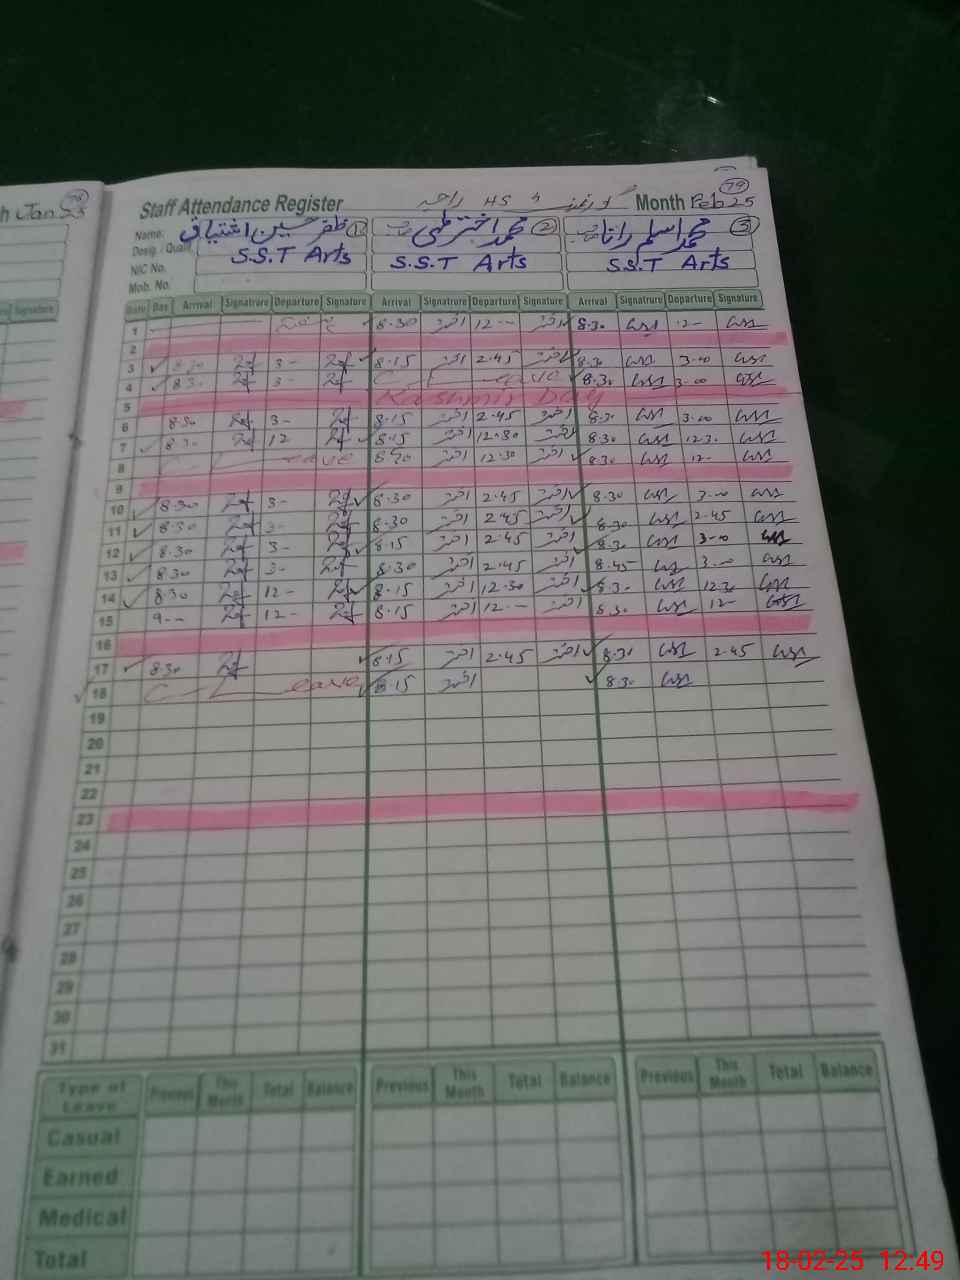 h Jan 25
78
Signature
79
Staff Attendance Register HS Month Feb 25
Name: ظفر حسین اشتیاق 1 محمد اختر 2 محمد اسلم رانا 3
Desig. / Quali. S.S.T Arts S.S.T Arts S.S.T Arts
NIC No.
Mob. No.
Date Day Arrival Signatrure Departure Signature Arrival Signatrure Departure Signature Arrival Signatrure Departure Signature
1 8.30 اختر 12-- اختر 8.30 12--
2
3 8.30 3- 8.15 اختر 2.45 اختر 8.30 3.00
4 8.30 3- C-Leave 8.30 3.00
5 Kashmir Day
6 8.30 3- 8.15 اختر 2.45 اختر 8.30 3.00
7 8.30 12 8.15 اختر 12.30 اختر 8.30 12.30
8 C-Leave 8.30 اختر 12.30 اختر 8.30 12-
9
10 8.30 3- 8.30 اختر 2.45 اختر 8.30 3.00
11 8.30 3- 8.30 اختر 2.45 اختر 8.30 2.45
12 8.30 3- 8.15 اختر 2.45 اختر 8.30 3.00
13 8.30 3- 8.30 اختر 2.45 اختر 8.45 3.00
14 8.30 12- 8.15 اختر 12.30 اختر 8.30 12.30
15 9-- 12- 8.15 اختر 12-- اختر 8.30 12-
16
17 8.30 8.15 اختر 2.45 اختر 8.30 2.45
18 C-Leave 8.15 اختر 8.30
19
20
21
22
23
24
25
26
27
28
29
30
31
Type of Leave Previous This Month Total Balance Previous This Month Total Balance Previous This Month Total Balance
Casual
Earned
Medical
Total
18-02-25 12:49